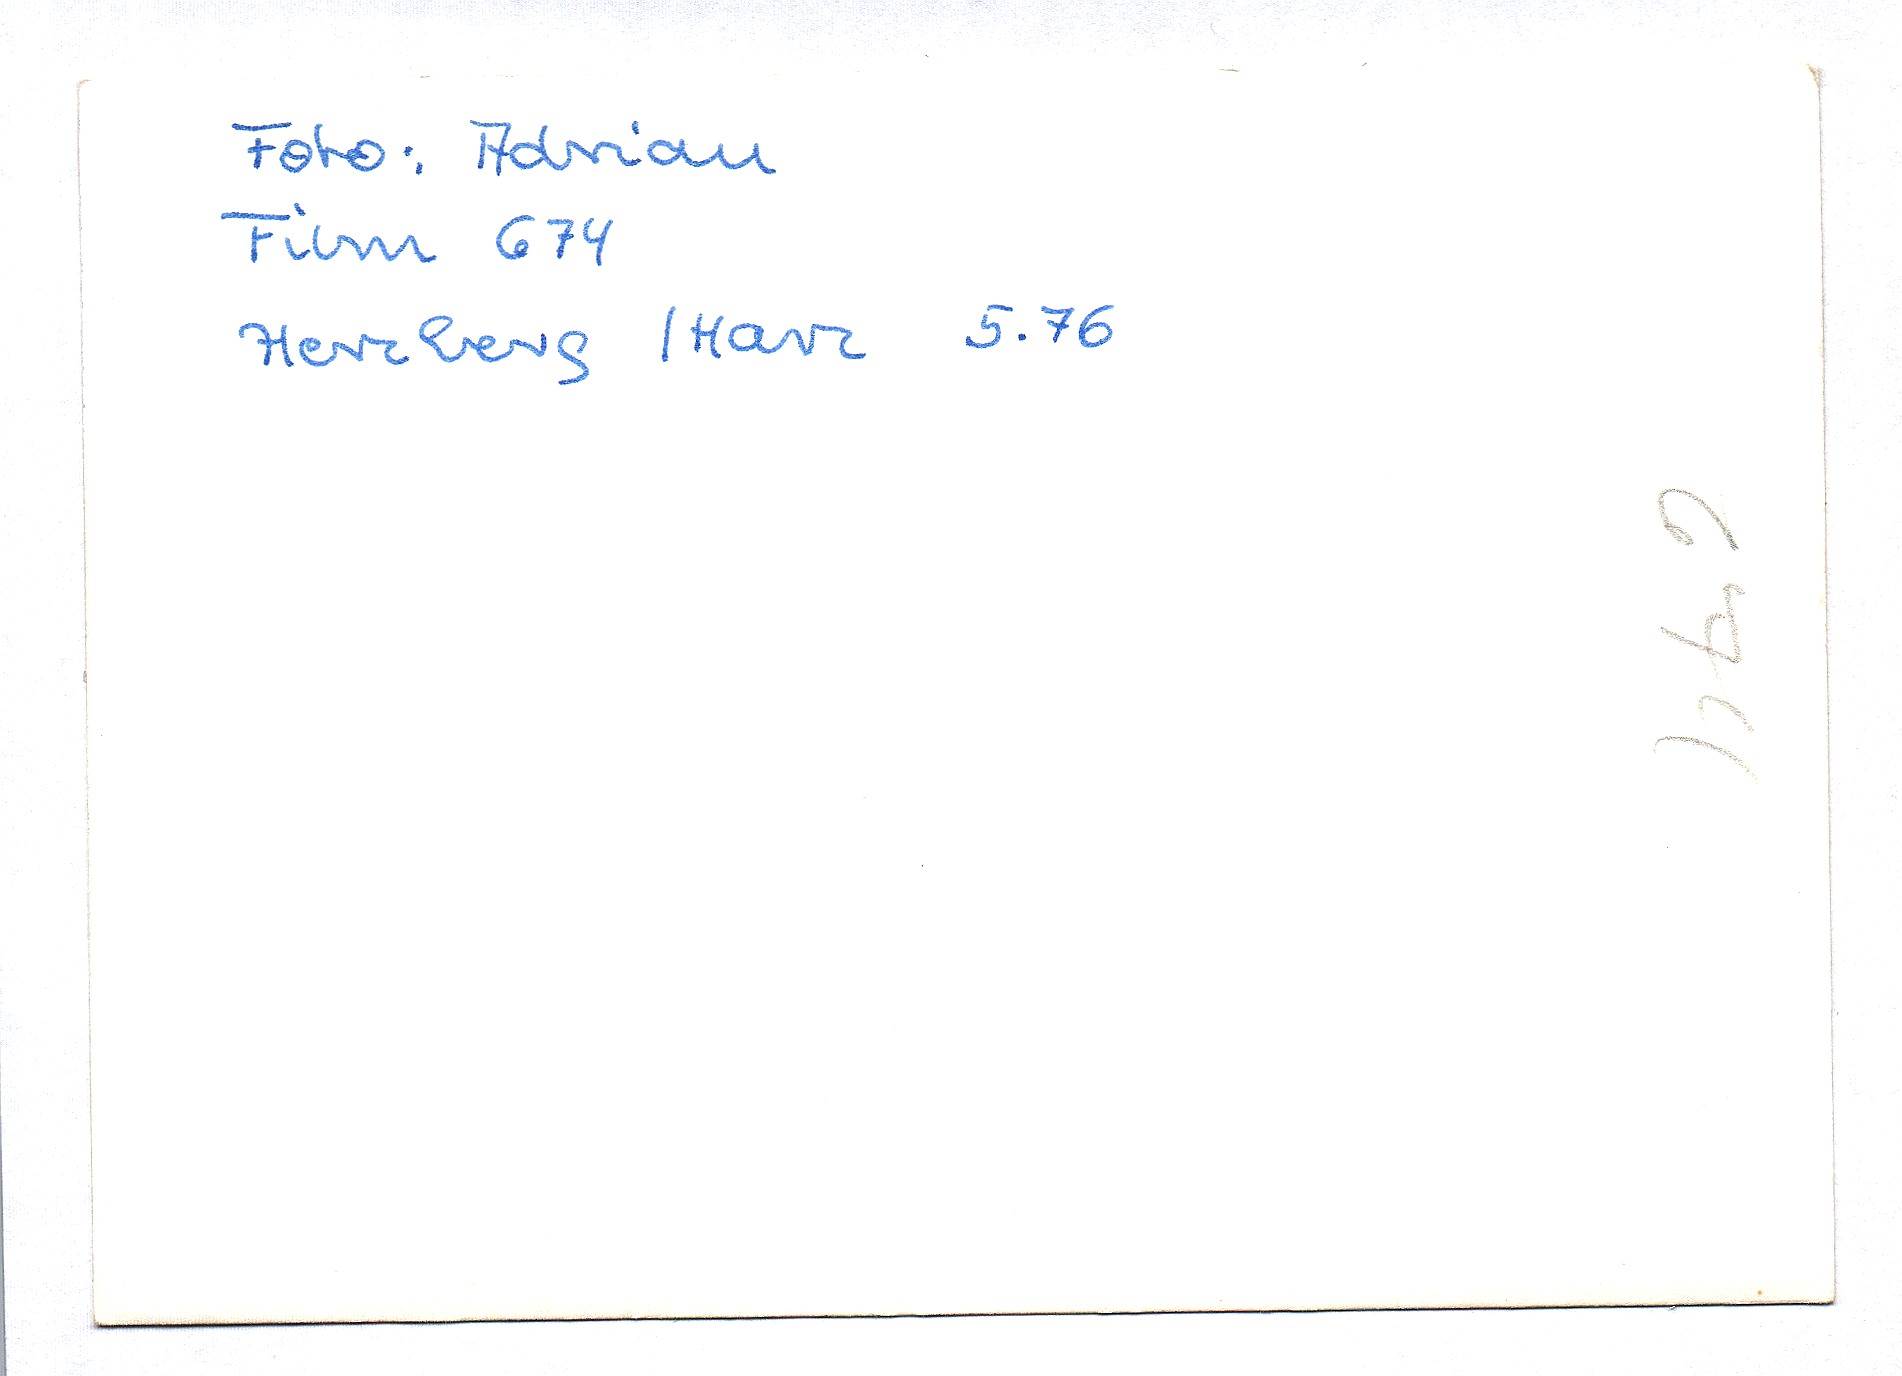 Foto: Adrian
Film 674
Herzberg /Harz 5.76